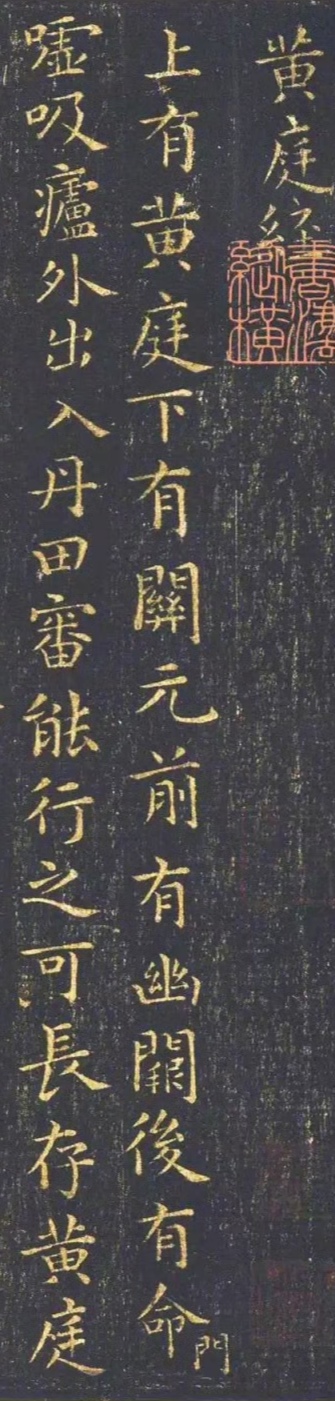 黄庭經
書法縱橫
上有黄庭下有關元前有幽闕後有命門
嘘吸廬外出入丹田審能行之可長存黄庭